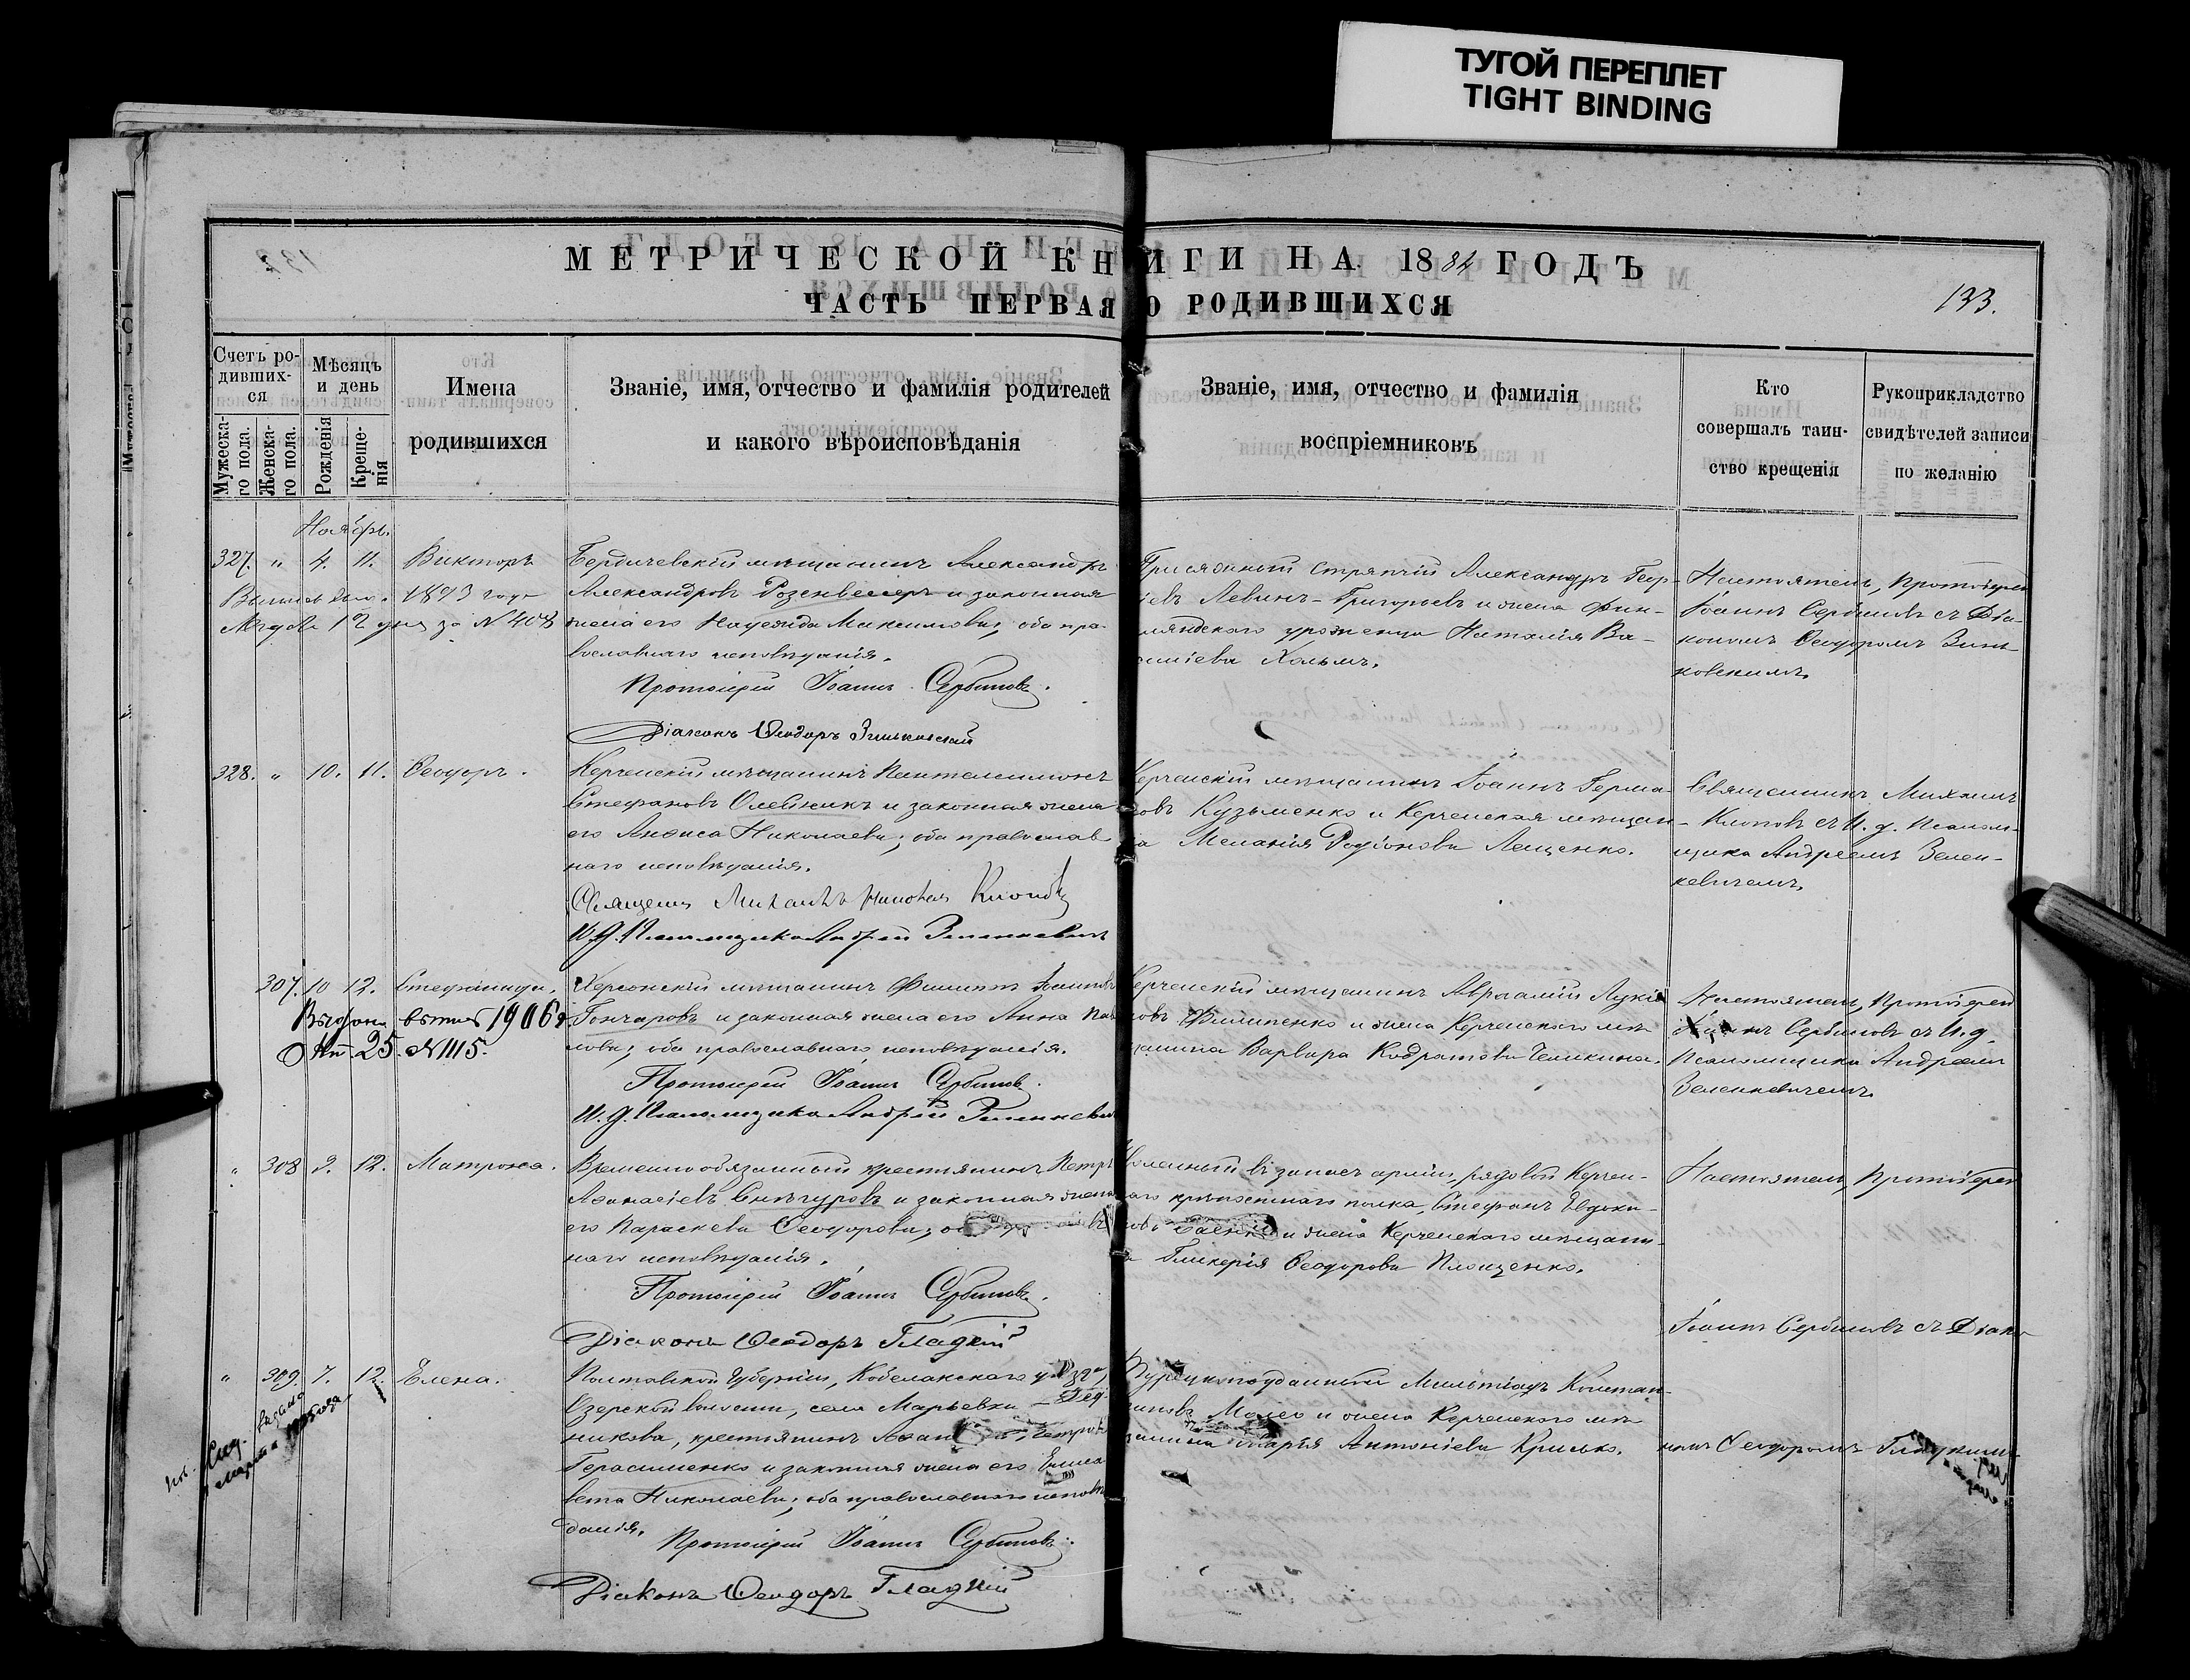 ТУГОЙ ПЕРЕПЛЕТ
TIGHT BINDING
МЕТРИЧЕСКОЙ КНИГИ НА 1884 ГОДЪ
ЧАСТЬ ПЕРВАЯ О РОДИВШИХСЯ
133.
Счетъ ро-
дивших-
ся
Мужеска-
го пола.
Женска-
го пола.
Мѣсяцъ
и день
Рожденія
Креще-
нія
Имена
родившихся
Званіе, имя, отчество и фамилія родителей
и какого вѣроисповѣданія
Званіе, имя, отчество и фамилія
воспріемниковъ
Кто
совершалъ таин-
ство крещенія
Рукоприкладство
свидѣтелей записи
по желанію
Ноябрь.
327. " 4. 11. Викторъ
1893 года
12 дня за № 408
Бердичевскій мѣщанинъ Александръ
Александровъ Розенвейгеръ и законная
жена его Надежда Максимова, оба пра-
вославнаго исповѣданія.
Протоіерей Іоаннъ Сербиновъ.
Діаконъ Ѳеодоръ Зиньковскій
Присяжный стряпчій Александръ Геор-
іевъ Левинъ-Григорьевъ и жена Фин-
ляндскаго уроженца Наталія Ва-
силіева Хольмъ.
Настоятель, Протоіерей
Іоаннъ Сербиновъ съ Діа-
кономъ Ѳеодоромъ Зинь-
ковскимъ.
328. " 10. 11. Ѳеодоръ.
Керченскій мѣщанинъ Пантелеимонъ
Стефановъ Олейникъ и законная жена
его Анѳиса Николаева; оба православ-
наго исповѣданія.
Священникъ Михаилъ Клоповъ
И. д. Псаломщика Андрей Зеленкевичъ
Керченскій мѣщанинъ Іоаннъ Герма-
овъ Кузьменко и Керченская мѣщан-
а Меланія Родіонова Лещенко.
Священникъ Михаилъ
Клоповъ съ И. д. Псалом-
щика Андреемъ Зелен-
кевичемъ.
307. 10 12. Стефанида.
Выдана 1906 г.
25. № 1115.
Херсонскій мѣщанинъ Филиппъ Іоанновъ
Гончаровъ и законная жена его Анна Пав-
лова; оба православнаго исповѣданія.
Протоіерей Іоаннъ Сербиновъ.
И. д. Псаломщика Андрей Зеленкевичъ
Керченскій мѣщанинъ Авраамій Лукіа
овъ Филипенко и жена Керченскаго мѣ-
щанина Варвара Кодратова Чепикина.
Настоятель, Протоіерей
Іоаннъ Сербиновъ съ И. д.
Псаломщика Андреемъ
Зеленкевичемъ.
" 308 9. 12. Матрона.
Временнообязанный крестьянинъ Петръ
Аѳанасіевъ Снѣгуровъ и законная жена
его Параскева Ѳеодорова;
наго исповѣданія.
Протоіерей Іоаннъ Сербиновъ.
Діаконъ Ѳеодоръ Гладкій
Уволенный въ запасъ арміи, рядовой Керчен-
скаго крѣпостнаго полка, Стефанъ Евдоки-
мовъ и жена Керченскаго мѣщани-
а Гликерія Ѳеодорова Площенко.
Настоятель, Протоіерей
Іоаннъ Сербиновъ съ Діако-
номъ Ѳеодоромъ Гладкимъ.
" 309. 7. 12. Елена.
Полтавской Губерніи, Кобелакскаго уѣзда,
Озерской волости, села Марьевки
никова, крестьянинъ
Герасименко и законная жена его Елиса-
вета Николаева; оба православнаго исповѣ-
данія.
Протоіерей Іоаннъ Сербиновъ.
Діаконъ Ѳеодоръ Гладкій
Турецкоподданный Мильтіадъ Констан-
тиновъ и жена Керченскаго мѣ-
щанина Марія Антоніева Крисько.